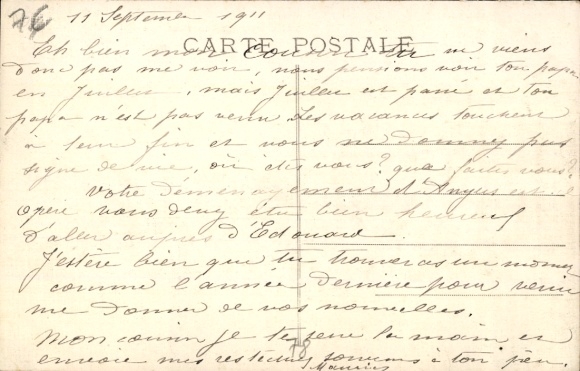 7€
11 Septembre 1911
CARTE POSTALE
Eh bien mon cousin tu ne viens
donc pas me voir, nous pensions voir ton papa
en Juillet, mais Juillet est passé et ton
papa n'est pas venu. Les vacances touchent
à leur fin et vous ne donnez pas
signe de vie, où êtes vous? que faites vous?
Votre déménagement d'Angers est-il
opéré vous devez être bien heureux
d'aller auprès d'Edouard.
J'espère bien que tu trouveras un moment
comme l'année dernière pour venir
me donner de vos nouvelles.
Mon cousin je te serre la main et
envoie mes respectueux à ton père.
78
Maurice